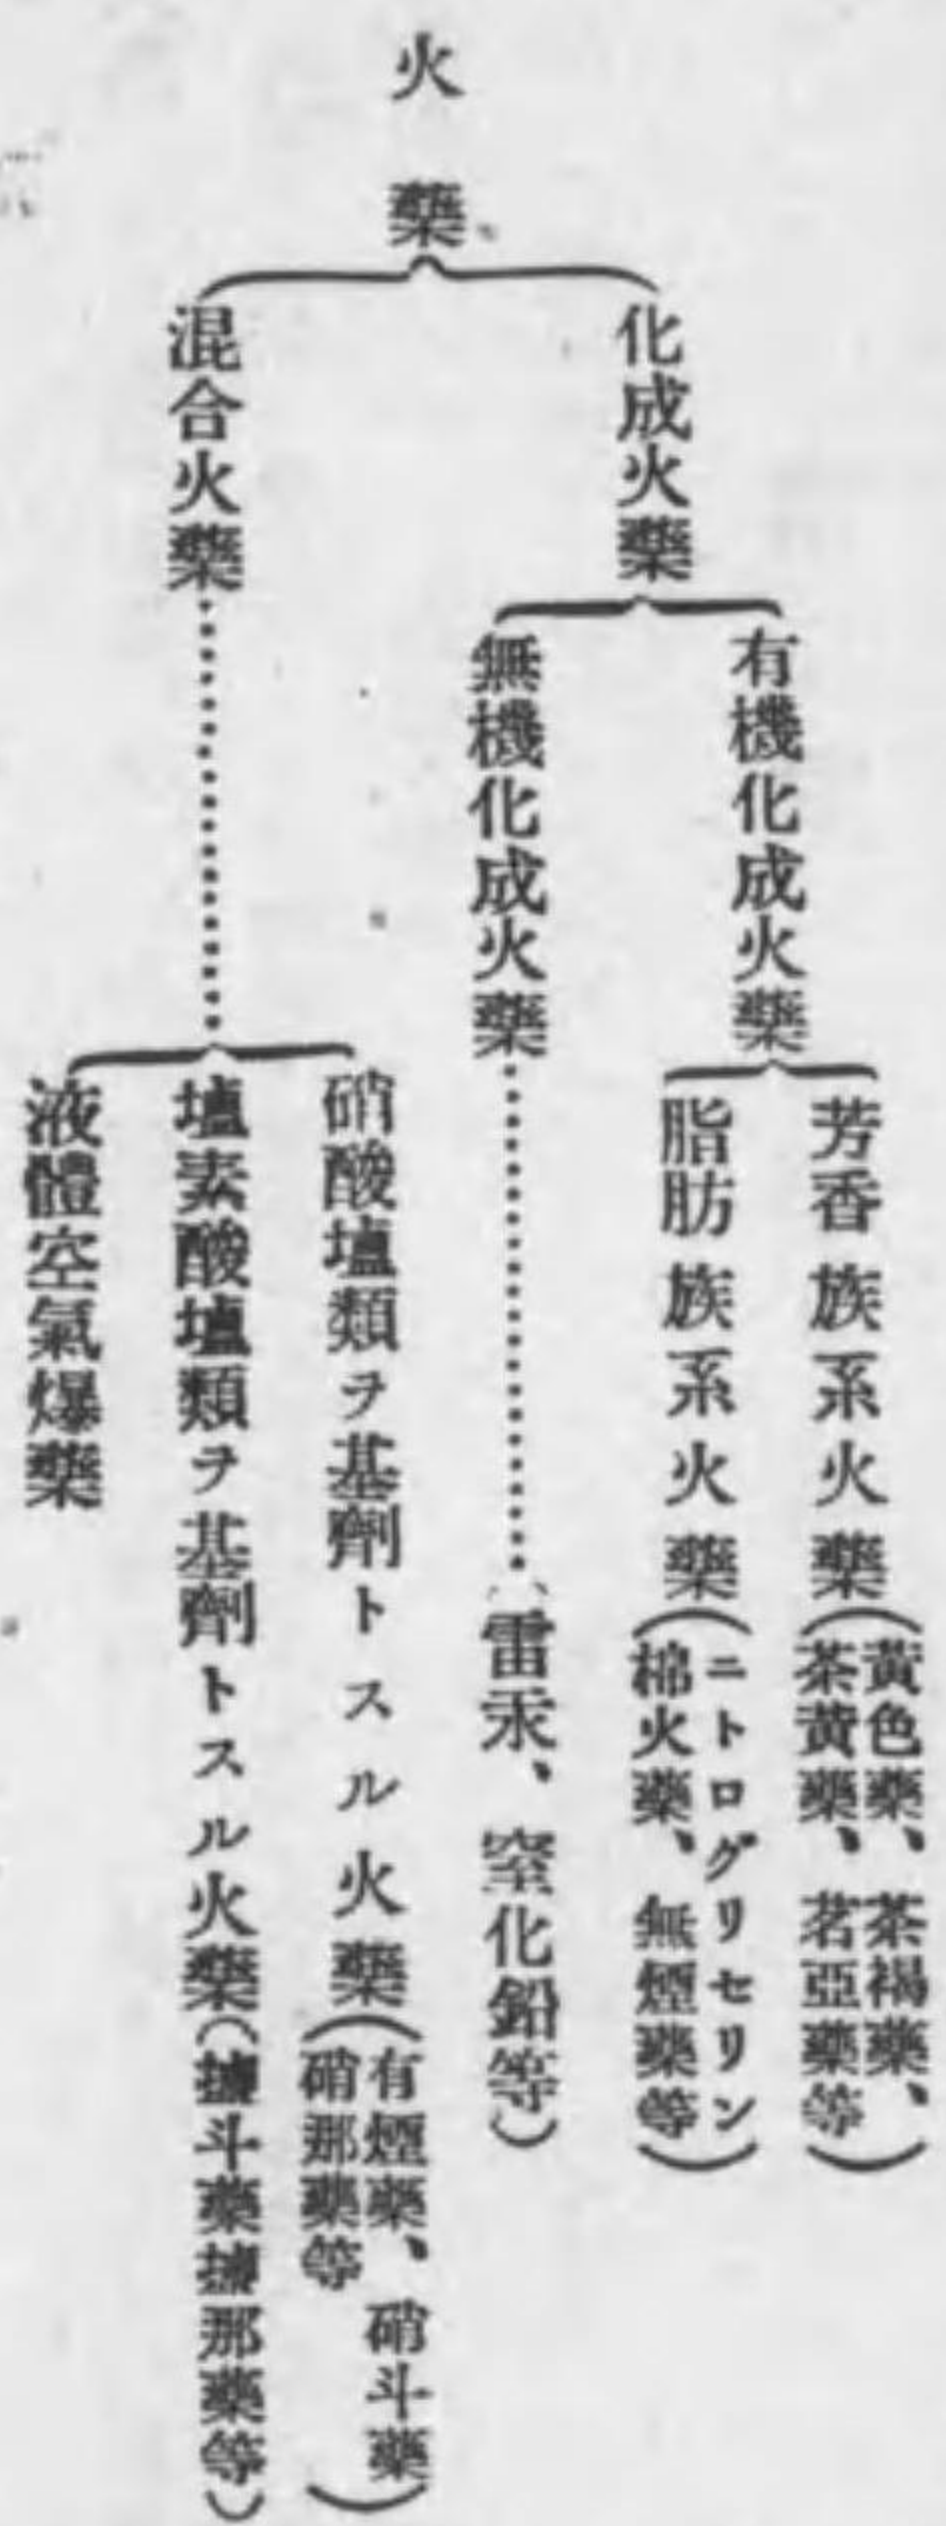 火藥
化成火藥
有機化成火藥
芳香族系火藥(黃色藥、茶褐藥、
茶黃藥、茗亞藥等)
脂肪族系火藥(ニトログリセリン
棉火藥、無煙藥等)
無機化成火藥……(雷汞、窒化鉛等)
混合火藥……
硝酸塩類ヲ基劑トスル火藥(有煙藥、硝斗藥
硝那藥等)
塩素酸塩類ヲ基劑トスル火藥(
斗藥
那藥等)
液體空氣爆藥